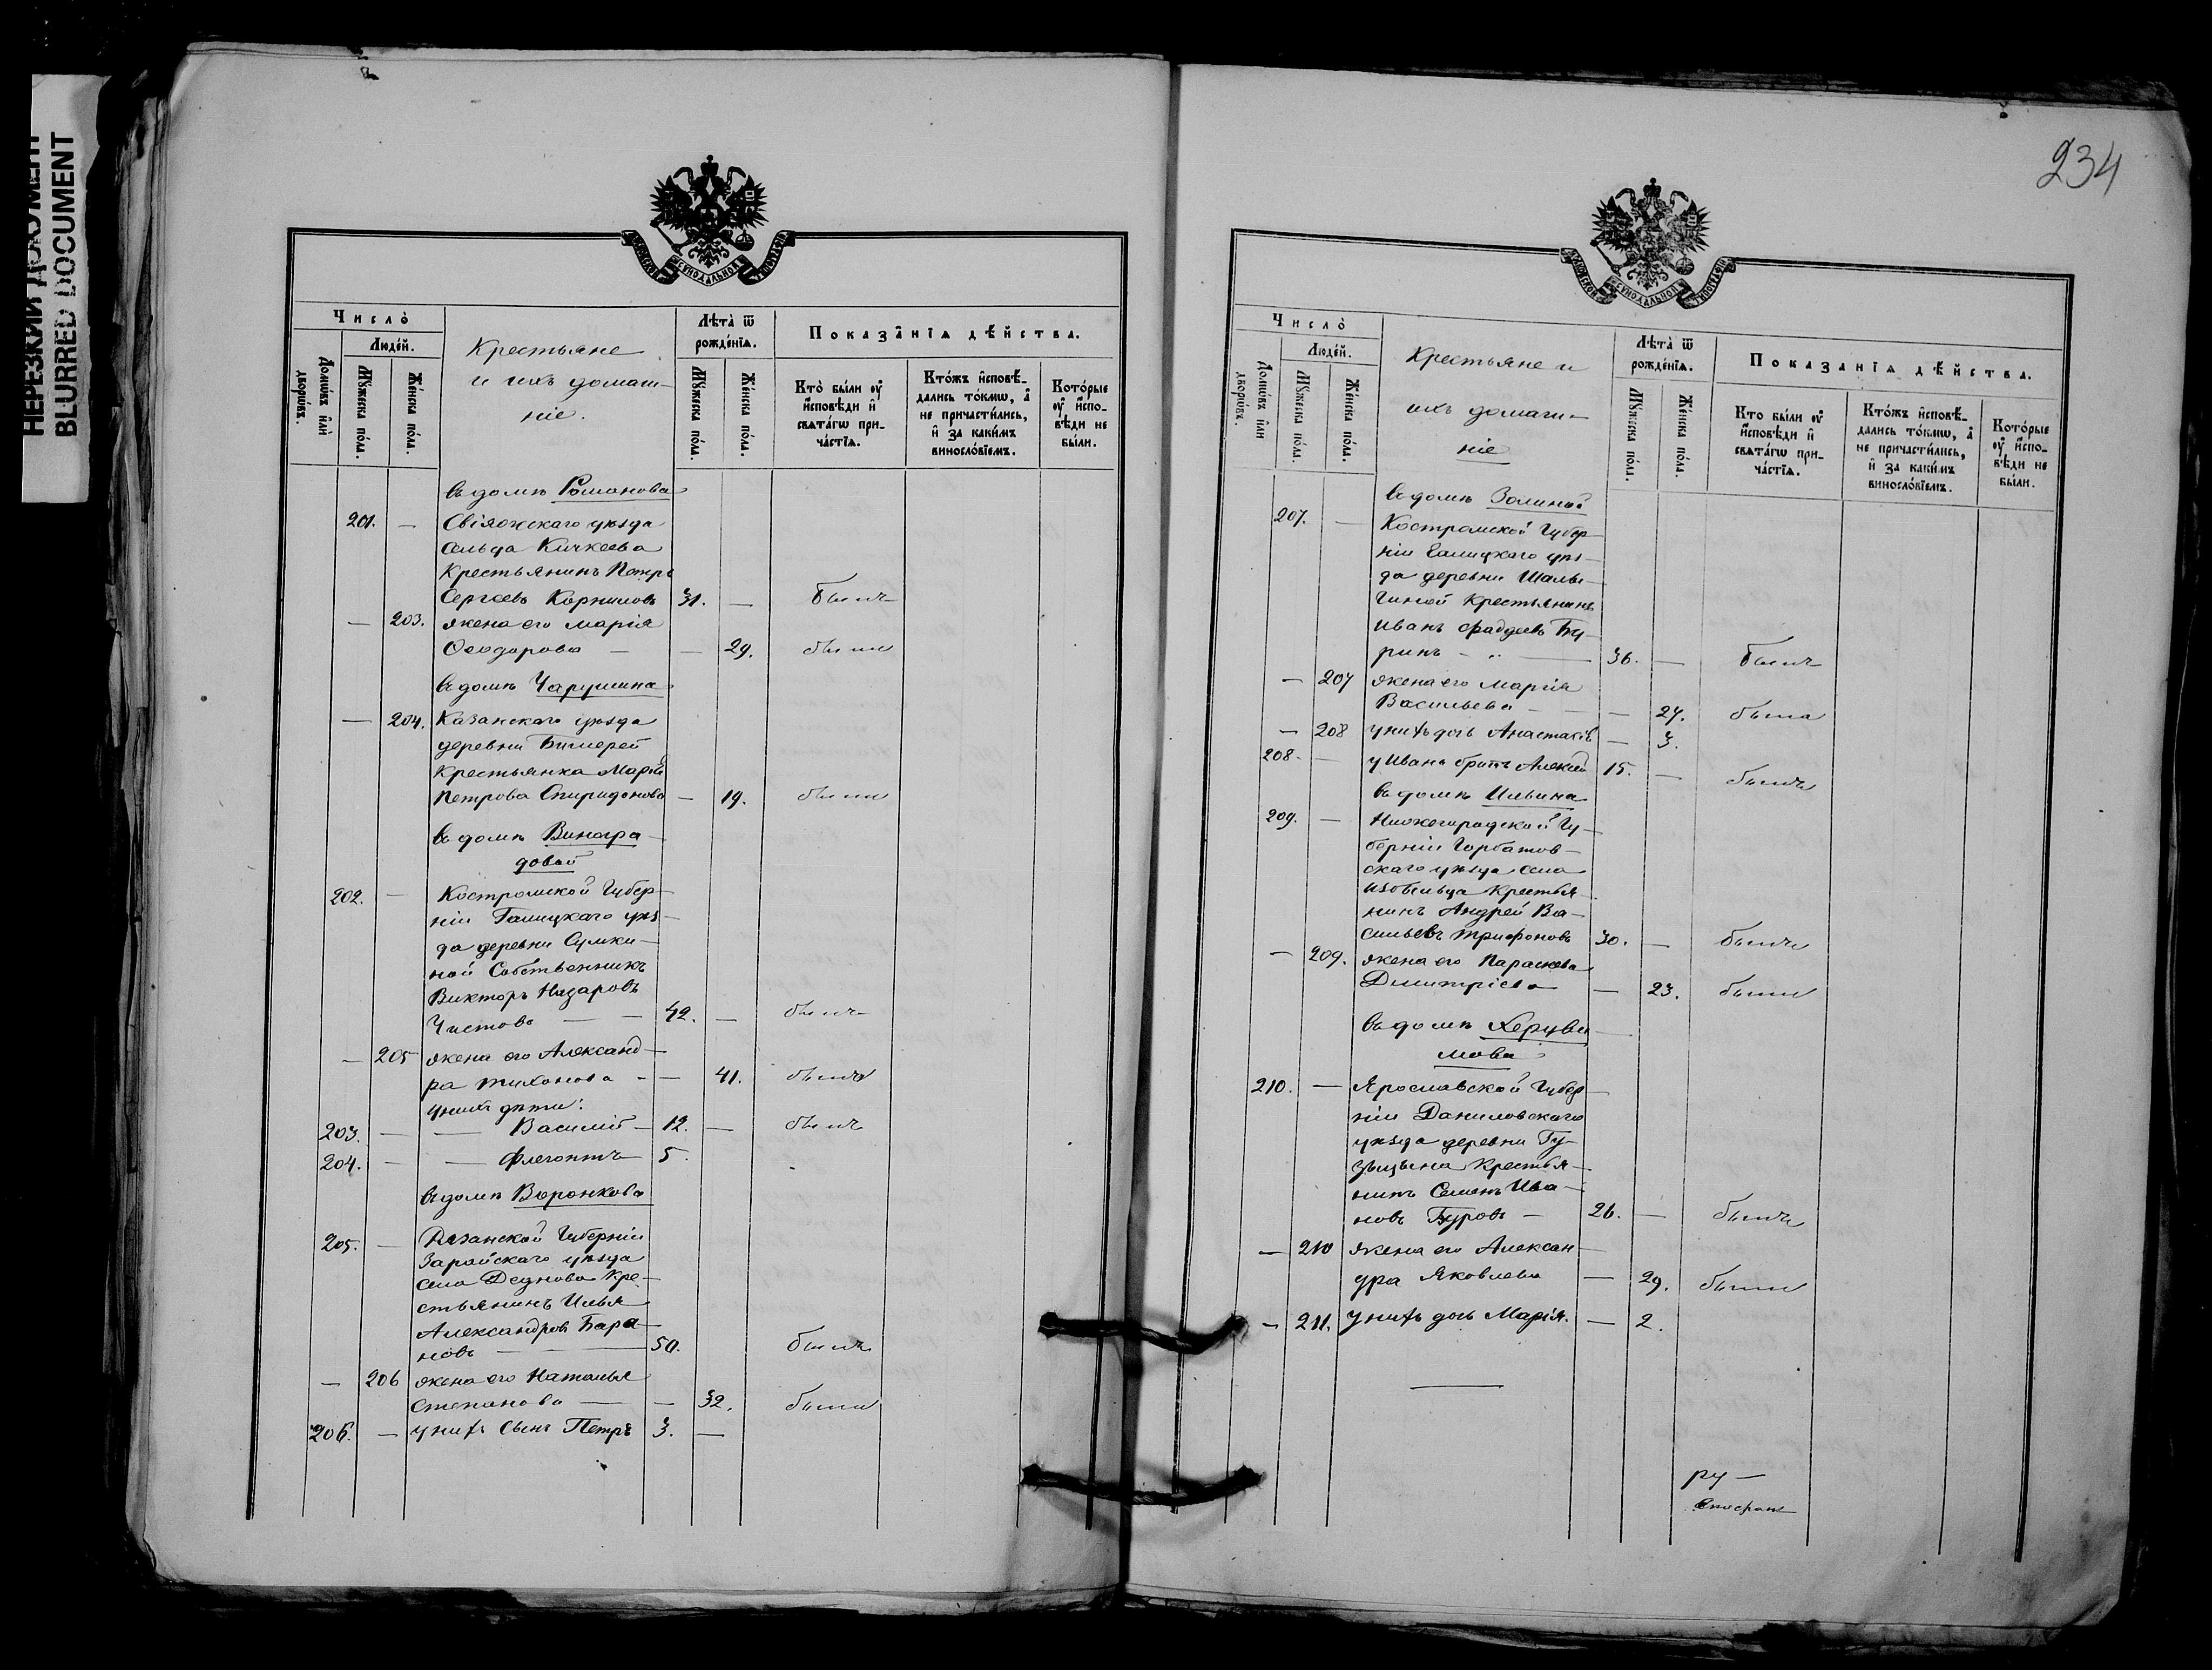 НЕРЕЗКИЙ ДОКУМЕНТ
BLURRED DOCUMENT
МОСКОВСКОЙ СѴНОДАЛЬНОЙ ТѴПОГРАФІИ
Число̀
Людéй.
Домѡ́въ и҆лѝ дворѡ́въ.
Мꙋ́жеска по́ла.
Же́нска по́ла.
Крестьяне
и ихъ домаш-
ніе.
Лѣта̀ ѿ рождéнїѧ.
Мꙋ́жеска по́ла.
Же́нска по́ла.
Показа̑нїѧ дѣ́йства.
Кто̀ бы́ли ᲂу҆ и҆сповѣ́ди и҆ свѧта́гѡ прича́стїѧ.
Кто́жъ и҆сповѣ́дались то́кмѡ, а҆ не причасти́лись, и҆ за каки́мъ винослóвїемъ.
Кото́рые ᲂу҆ и҆сповѣ́ди не бы́ли.
въ домѣ Романова
201. — Свіяжскаго уѣзда
сельца Кичкеева
Крестьянинъ Петръ
Сергѣевъ Корниловъ 31. — былъ
— 203. жена его Марія
Ѳеодорова — — 29. была
въ домѣ Чарушина
— 204. Казанскаго уѣзда
деревни Бимерей
Крестьянка Марія
Петрова Спиридонова — 19. была
въ домѣ Виногра-
довой
202. — Костромской Губер-
ніи Галицкаго уѣз-
да деревни Сумки-
ной Собственникъ
Викторъ Назаровъ
Чистовъ — 42. — былъ
— 205 жена его Александ-
ра Тихонова — — 41. была
у нихъ дѣти:
203. — — Василій — 12. — былъ
204. — — Флегонтъ — 5.
въ домѣ Воронкова
205. — Рязанской Губерніи
Зарайскаго уѣзда
села Дѣднова Кре-
стьянинъ Илья
Александровъ Бара-
новъ — 50. былъ
— 206 жена его Наталья
Степанова — — 32. была
206. — у нихъ сынъ Петръ 3. —
234
МОСКОВСКОЙ СѴНОДАЛЬНОЙ ТѴПОГРАФІИ
Число̀
Людéй.
Домѡ́въ и҆лѝ дворѡ́въ.
Мꙋ́жеска по́ла.
Же́нска по́ла.
Крестьяне и
ихъ домаш-
ніе
Лѣта̀ ѿ рождéнїѧ.
Мꙋ́жеска по́ла.
Же́нска по́ла.
Показа̑нїѧ дѣ́йства.
Кто̀ бы́ли ᲂу҆ и҆сповѣ́ди и҆ свѧта́гѡ прича́стїѧ.
Кто́жъ и҆сповѣ́дались то́кмѡ, а҆ не причасти́лись, и҆ за каки́мъ винослóвїемъ.
Кото́рые ᲂу҆ и҆сповѣ́ди не бы́ли.
въ домѣ Золиной
207. — Костромской Губер-
ніи Галицкаго уѣз-
да деревни Шалы-
гиной Крестьянинъ
Иванъ Фаддеевъ Бу-
ринъ — 36. — былъ
— 207 жена его Марія
Васильева — — 27. была
— 208 у нихъ дочь Анастасія — 3.
208. — у Ивана братъ Алексѣй 15. — былъ
въ домѣ Ильина
209. — Нижегородской Гу-
берніи Горбатов-
скаго уѣзда села
Избыльца Крестья-
нинъ Андрей Ва-
сильевъ Трифоновъ 30. — былъ
— 209. жена его Параскева
Димитріева — 23. была
въ домѣ Херуви-
мова
210. — Ярославской Губер-
ніи Даниловскаго
уѣзда деревни Гу-
зыцына Крестья-
нинъ Семенъ Ива-
новъ Буровъ — 26. — былъ
— 210 жена его Алексан-
дра Яковлева — 29. была
— 211. у нихъ дочь Марія. — 2.
ру-